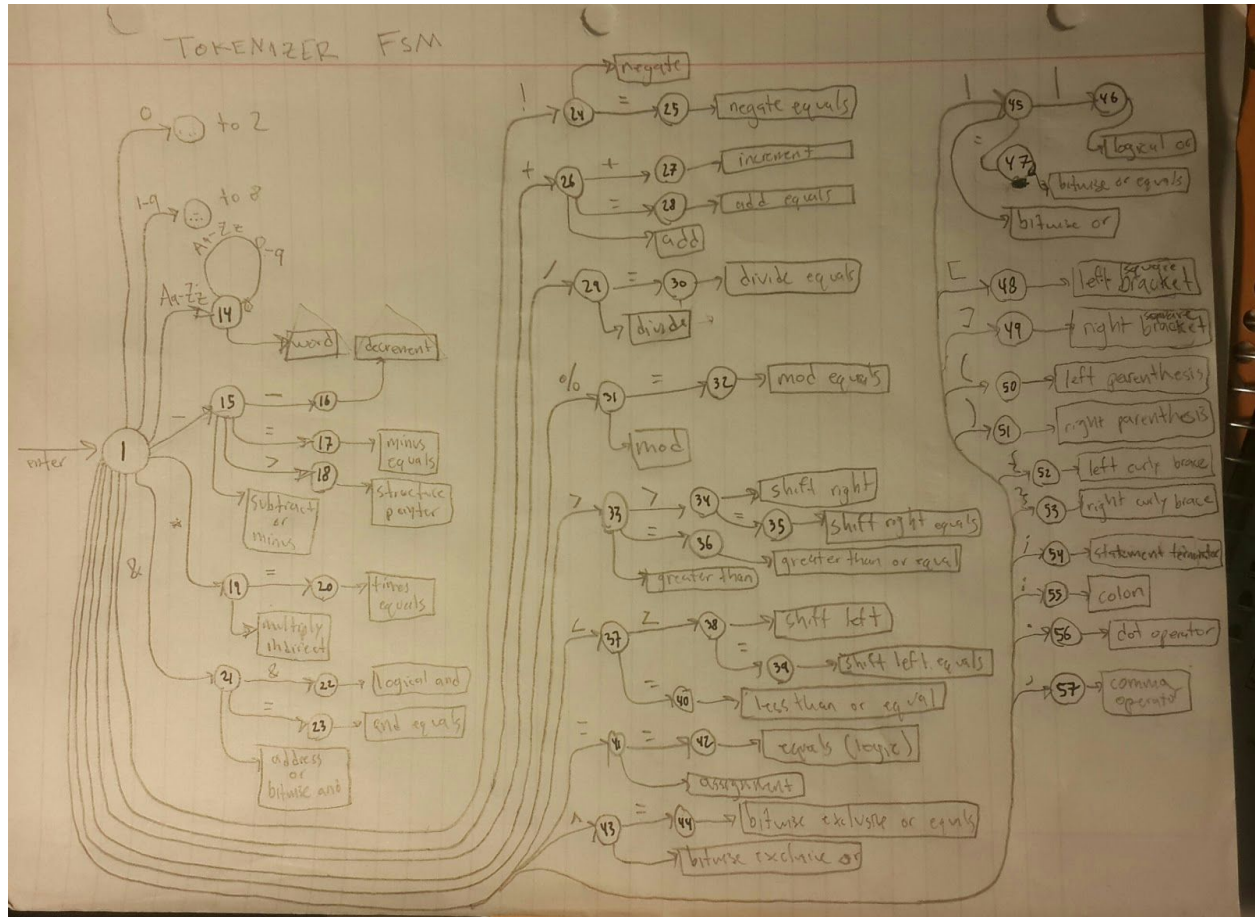 TOKENIZER FSM
0
... to 2
1-9
... to 8
Aa-Zz
0-9
Aa-Zz
14
word
decrement
-
15
-
16
=
17
minus
equals
>
18
structure
pointer
subtract
or
minus
enter
1
*
19
=
20
times
equals
multiply
indirect
&
21
&
22
logical and
=
23
and equals
address
or
bitwise and
!
24
negate
=
25
negate equals
+
26
+
27
increment
=
28
add equals
add
/
29
=
30
divide equals
divide
%
31
=
32
mod equals
mod
>
33
>
34
shift right
=
35
shift right equals
=
36
greater than or equal
greater than
<
37
<
38
shift left
=
39
shift left equals
=
40
less than or equal
=
41
=
42
equals (logic)
assignment
^
43
=
44
bitwise exclusive or equals
bitwise exclusive or
|
45
|
46
logical or
=
47
bitwise or equals
bitwise or
[
48
left square
bracket
]
49
right square
bracket
(
50
left parenthesis
)
51
right parenthesis
{
52
left curly brace
}
53
right curly brace
;
54
statement terminator
:
55
colon
.
56
dot operator
,
57
comma
operator